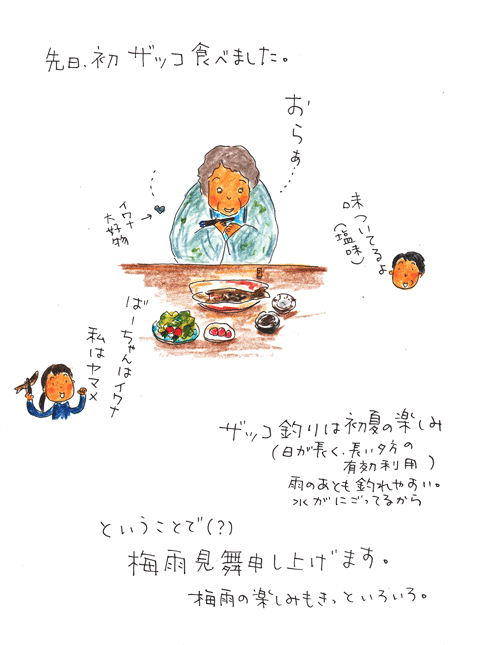 先日、初ザッコ食べました。
おらぁ…
イワナ
大好物
味ついてるよ。
(塩味)
ばーちゃんはイワナ
私はヤマメ
ザッコ釣りは初夏の楽しみ
(日が長く、長い夕方の
有効利用)
雨のあとも釣れやすい。
水がにごってるから
ということで(?)
梅雨見舞申し上げます。
梅雨の楽しみもきっといろいろ。